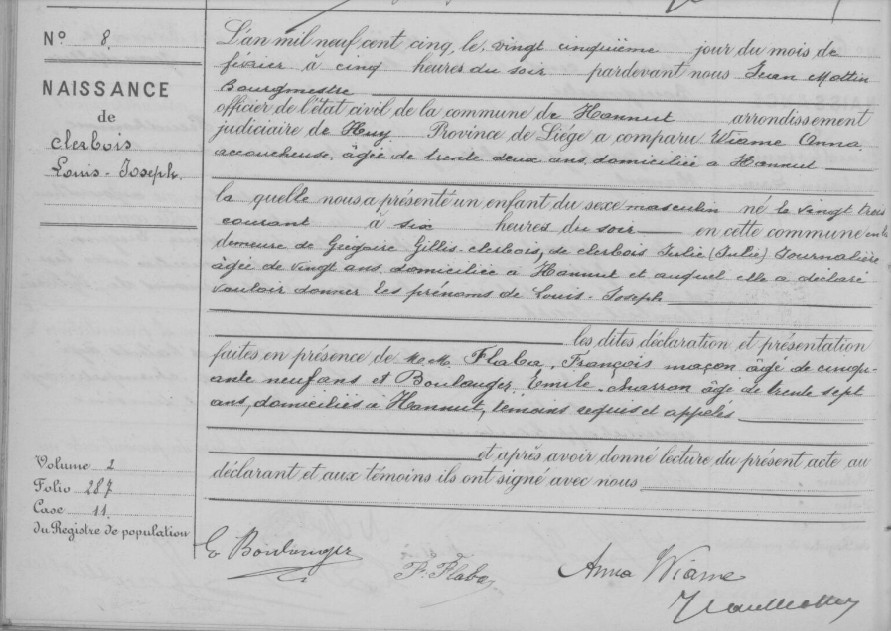 N° 8.
NAISSANCE
de
Clerbois
Louis-Joseph.
L'an mil neuf cent cinq, le vingt cinquième jour du mois de
février à cinq heures du soir pardevant nous Jean Mottin
Bourgmestre
officier de l'état civil de la commune de Hannut arrondissement
judiciaire de Huy Province de Liége a comparu Wiame Anna
accoucheuse, âgée de trente deux ans, domiciliée à Hannut
la quelle nous a présenté un enfant du sexe masculin né le vingt trois
courant à six heures du soir en cette commune en la
demeure de Grégoire Gillis-Clerbois, de Clerbois Julie (Julie) Journalière
âgée de vingt ans, domiciliée à Hannut et auquel elle a déclaré
vouloir donner les prénoms de Louis-Joseph
les dites déclaration et présentation
faites en présence de M.M. Flaba, François maçon âgé de cinqu-
ante neuf ans et Boulanger, Emile, charron âgé de trente sept
ans, domiciliés à Hannut, témoins requis et appelés
et après avoir donné lecture du présent acte au
déclarant et aux témoins ils ont signé avec nous
Volume 2
Folio 287
Case 11
du Registre de population
E Boulanger
F. Flaba
Anna Wiame